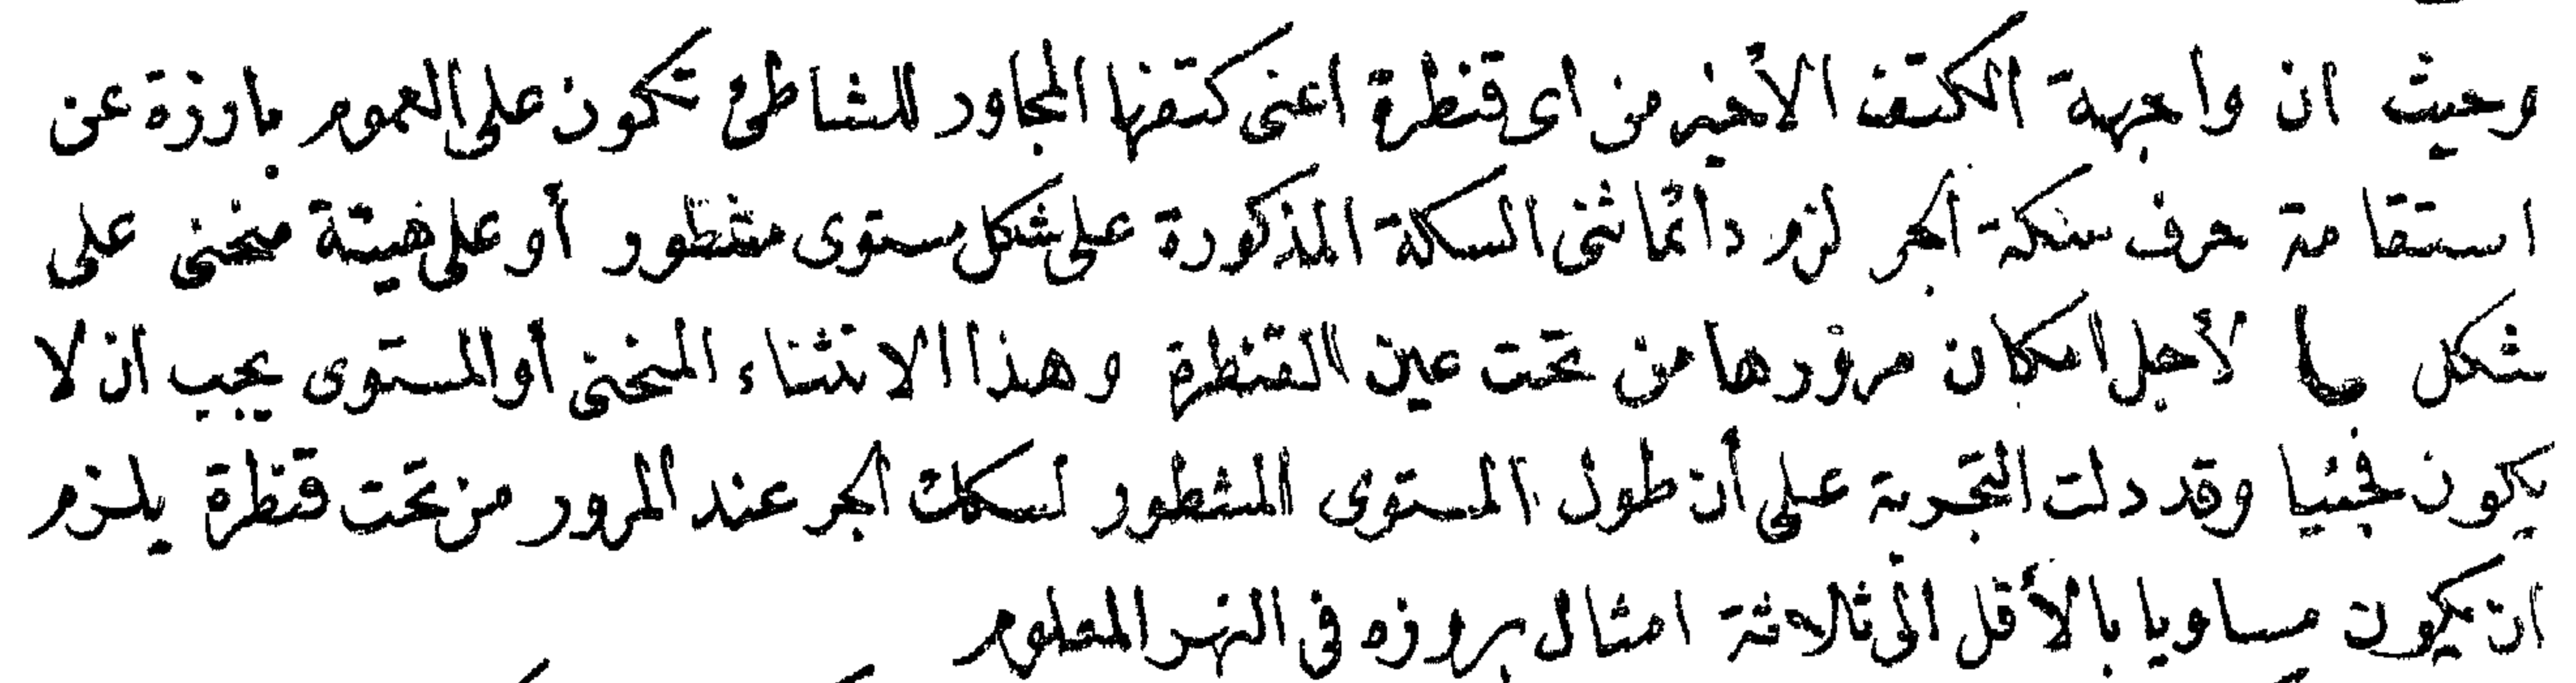 وحيث ان واجهة الكتف الأخير من اى قنطرة اعنى كتفها المجاور للشاطئ تكون على العموم بارزة عن
استقامة حرف سكة الجر لزم دائما ثنى السكة المذكورة على شكل مستوى مشطور أو على هيئة منحنى على
شكل لأجل امكان مرورها من تحت عين القنطرة وهذا الانثناء المنحنى أو المستوى يجب ان لا
يكون فجئيا وقد دلت التجربة على أن طول المستوى المشطور لسكك الجر عند المرور من تحت قنطرة يلزم
ان يكون مساويا بالأقل الى ثلاثة امثال بروزه فى النهر المعلوم